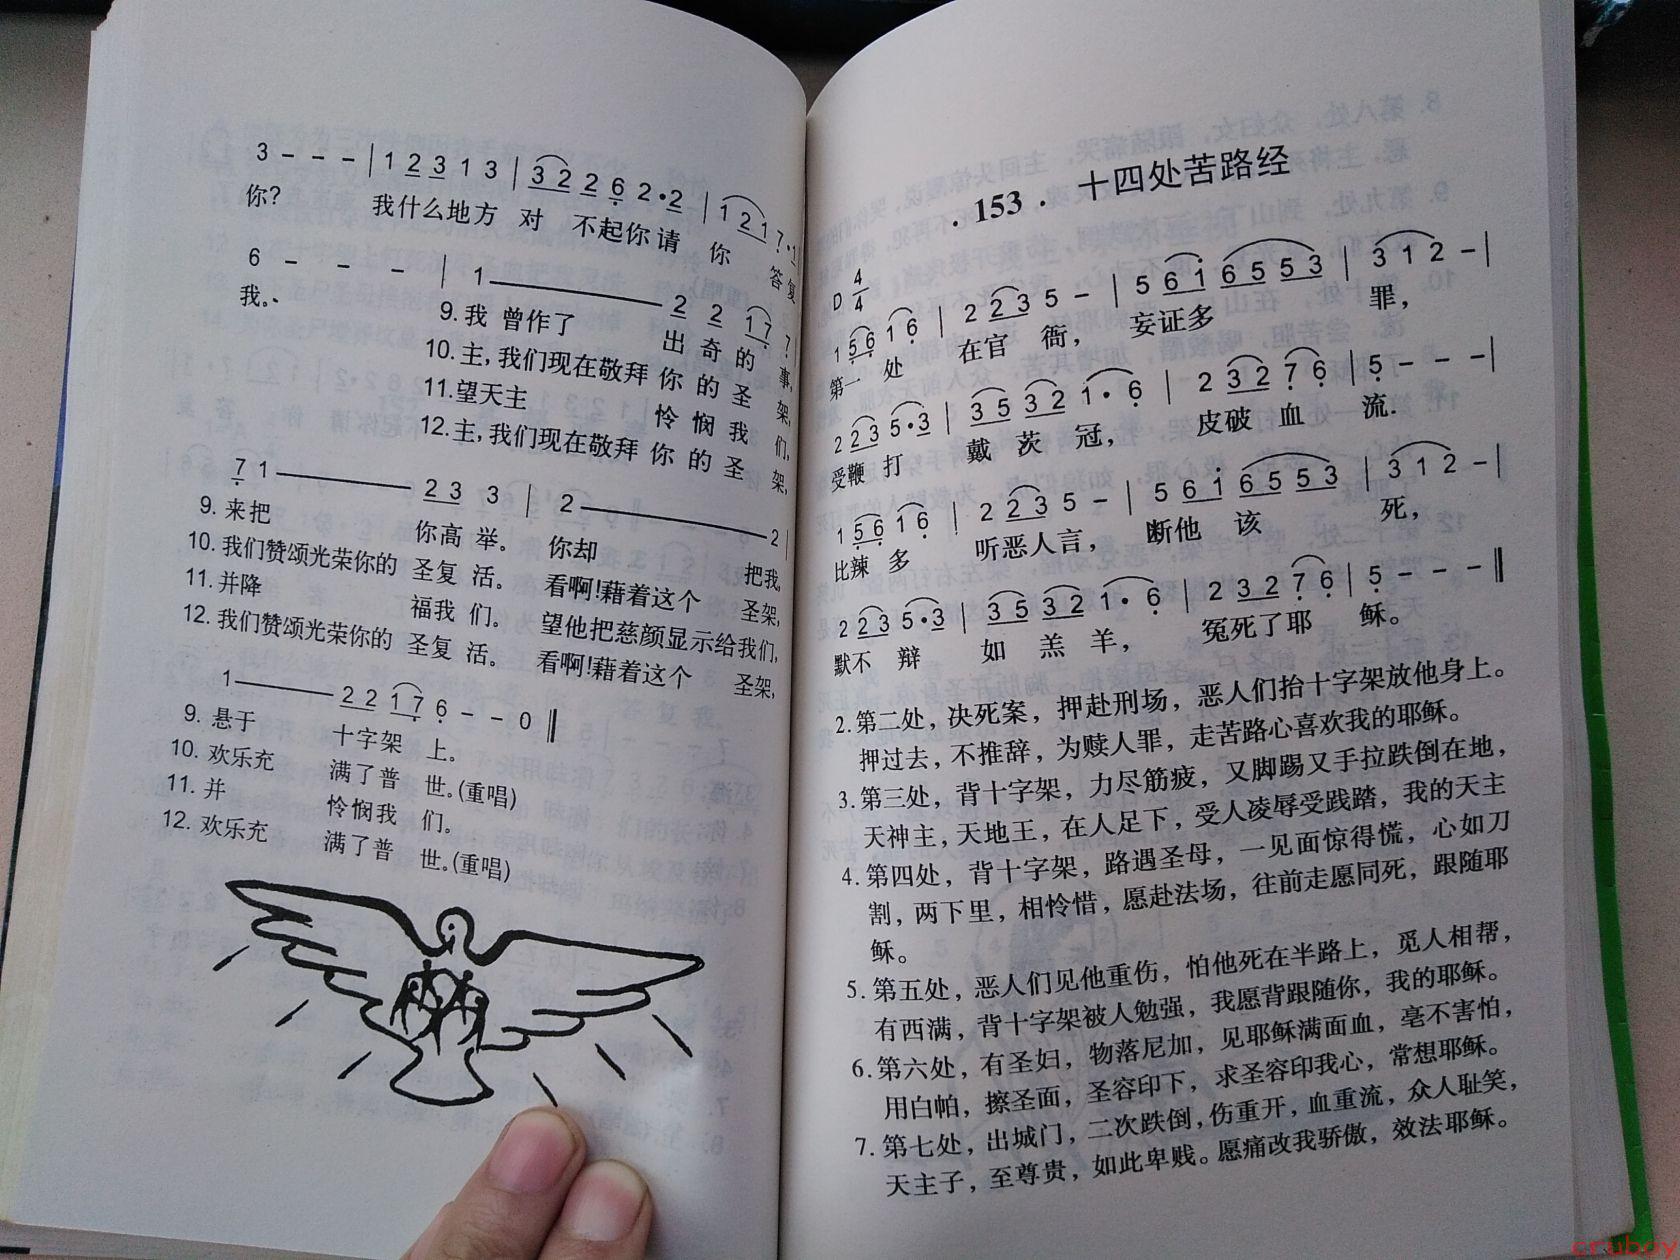 3 - - - | 1 2 3 1 3 | 3 2 2 6 2·2 | 1 2 1 7·1
你? 我什么地方 对 不起你请 你 答复
6 - - - | 1 —— 2 2 1 7 7
我。 9.我 曾作了 出奇的事,
10.主,我们现在敬拜 你的圣架,
11.望天主 怜悯我们,
12.主,我们现在敬拜 你的圣架,
7 1 —— 2 3 3 | 2 —— 2 |
9. 来把 你高 举。 你却 把我,
10. 我们赞颂光荣你的 圣复 活。 看啊!藉着这个 圣架,
11. 并降 福我 们。 望他把慈颜显示给我们,
12. 我们赞颂光荣你的 圣复 活。 看啊!藉着这个 圣架,
1 —— 2 2 1 7 6 - - 0 ‖
9. 悬于 十字架 上。
10. 欢乐充 满了普 世。(重唱)
11. 并 怜悯我 们。
12. 欢乐充 满了普 世。(重唱)
· 153 · 十四处苦路经
D 4/4
1 5 6 1 6 | 2 2 3 5 - | 5 6 1 6 5 5 3 | 3 1 2 - |
第一 处 在官 衙, 妄证多 罪,
2 2 3 5·3 | 3 5 3 2 1· 6 | 2 3 2 7 6 | 5 - - - |
受鞭 打 戴 茨 冠, 皮破 血 流.
1 5 6 1 6 | 2 2 3 5 - | 5 6 1 6 5 5 3 | 3 1 2 - |
比辣 多 听恶人言, 断他 该 死,
2 2 3 5·3 | 3 5 3 2 1· 6 | 2 3 2 7 6 | 5 - - - ‖
默不 辩 如 羔 羊, 冤死了耶 稣。
2. 第二处,决死案,押赴刑场,恶人们抬十字架放他身上。
押过去,不推辞,为赎人罪,走苦路心喜欢我的耶稣。
3. 第三处,背十字架,力尽筋疲,又脚踢又手拉跌倒在地,
天神主,天地王,在人足下,受人凌辱受践踏,我的天主
4. 第四处,背十字架,路遇圣母,一见面惊得慌,心如刀
割,两下里,相怜惜,愿赴法场,往前走愿同死,跟随耶
稣。
5. 第五处,恶人们见他重伤,怕他死在半路上,觅人相帮,
有西满,背十字架被人勉强,我愿背跟随你,我的耶稣。
6. 第六处,有圣妇,物落尼加,见耶稣满面血,毫不害怕,
用白帕,擦圣面,圣容印下,求圣容印我心,常想耶稣。
7. 第七处,出城门,二次跌倒,伤重开,血重流,众人耻笑,
天主子,至尊贵,如此卑贱。愿痛改我骄傲,效法耶稣。
cruboy